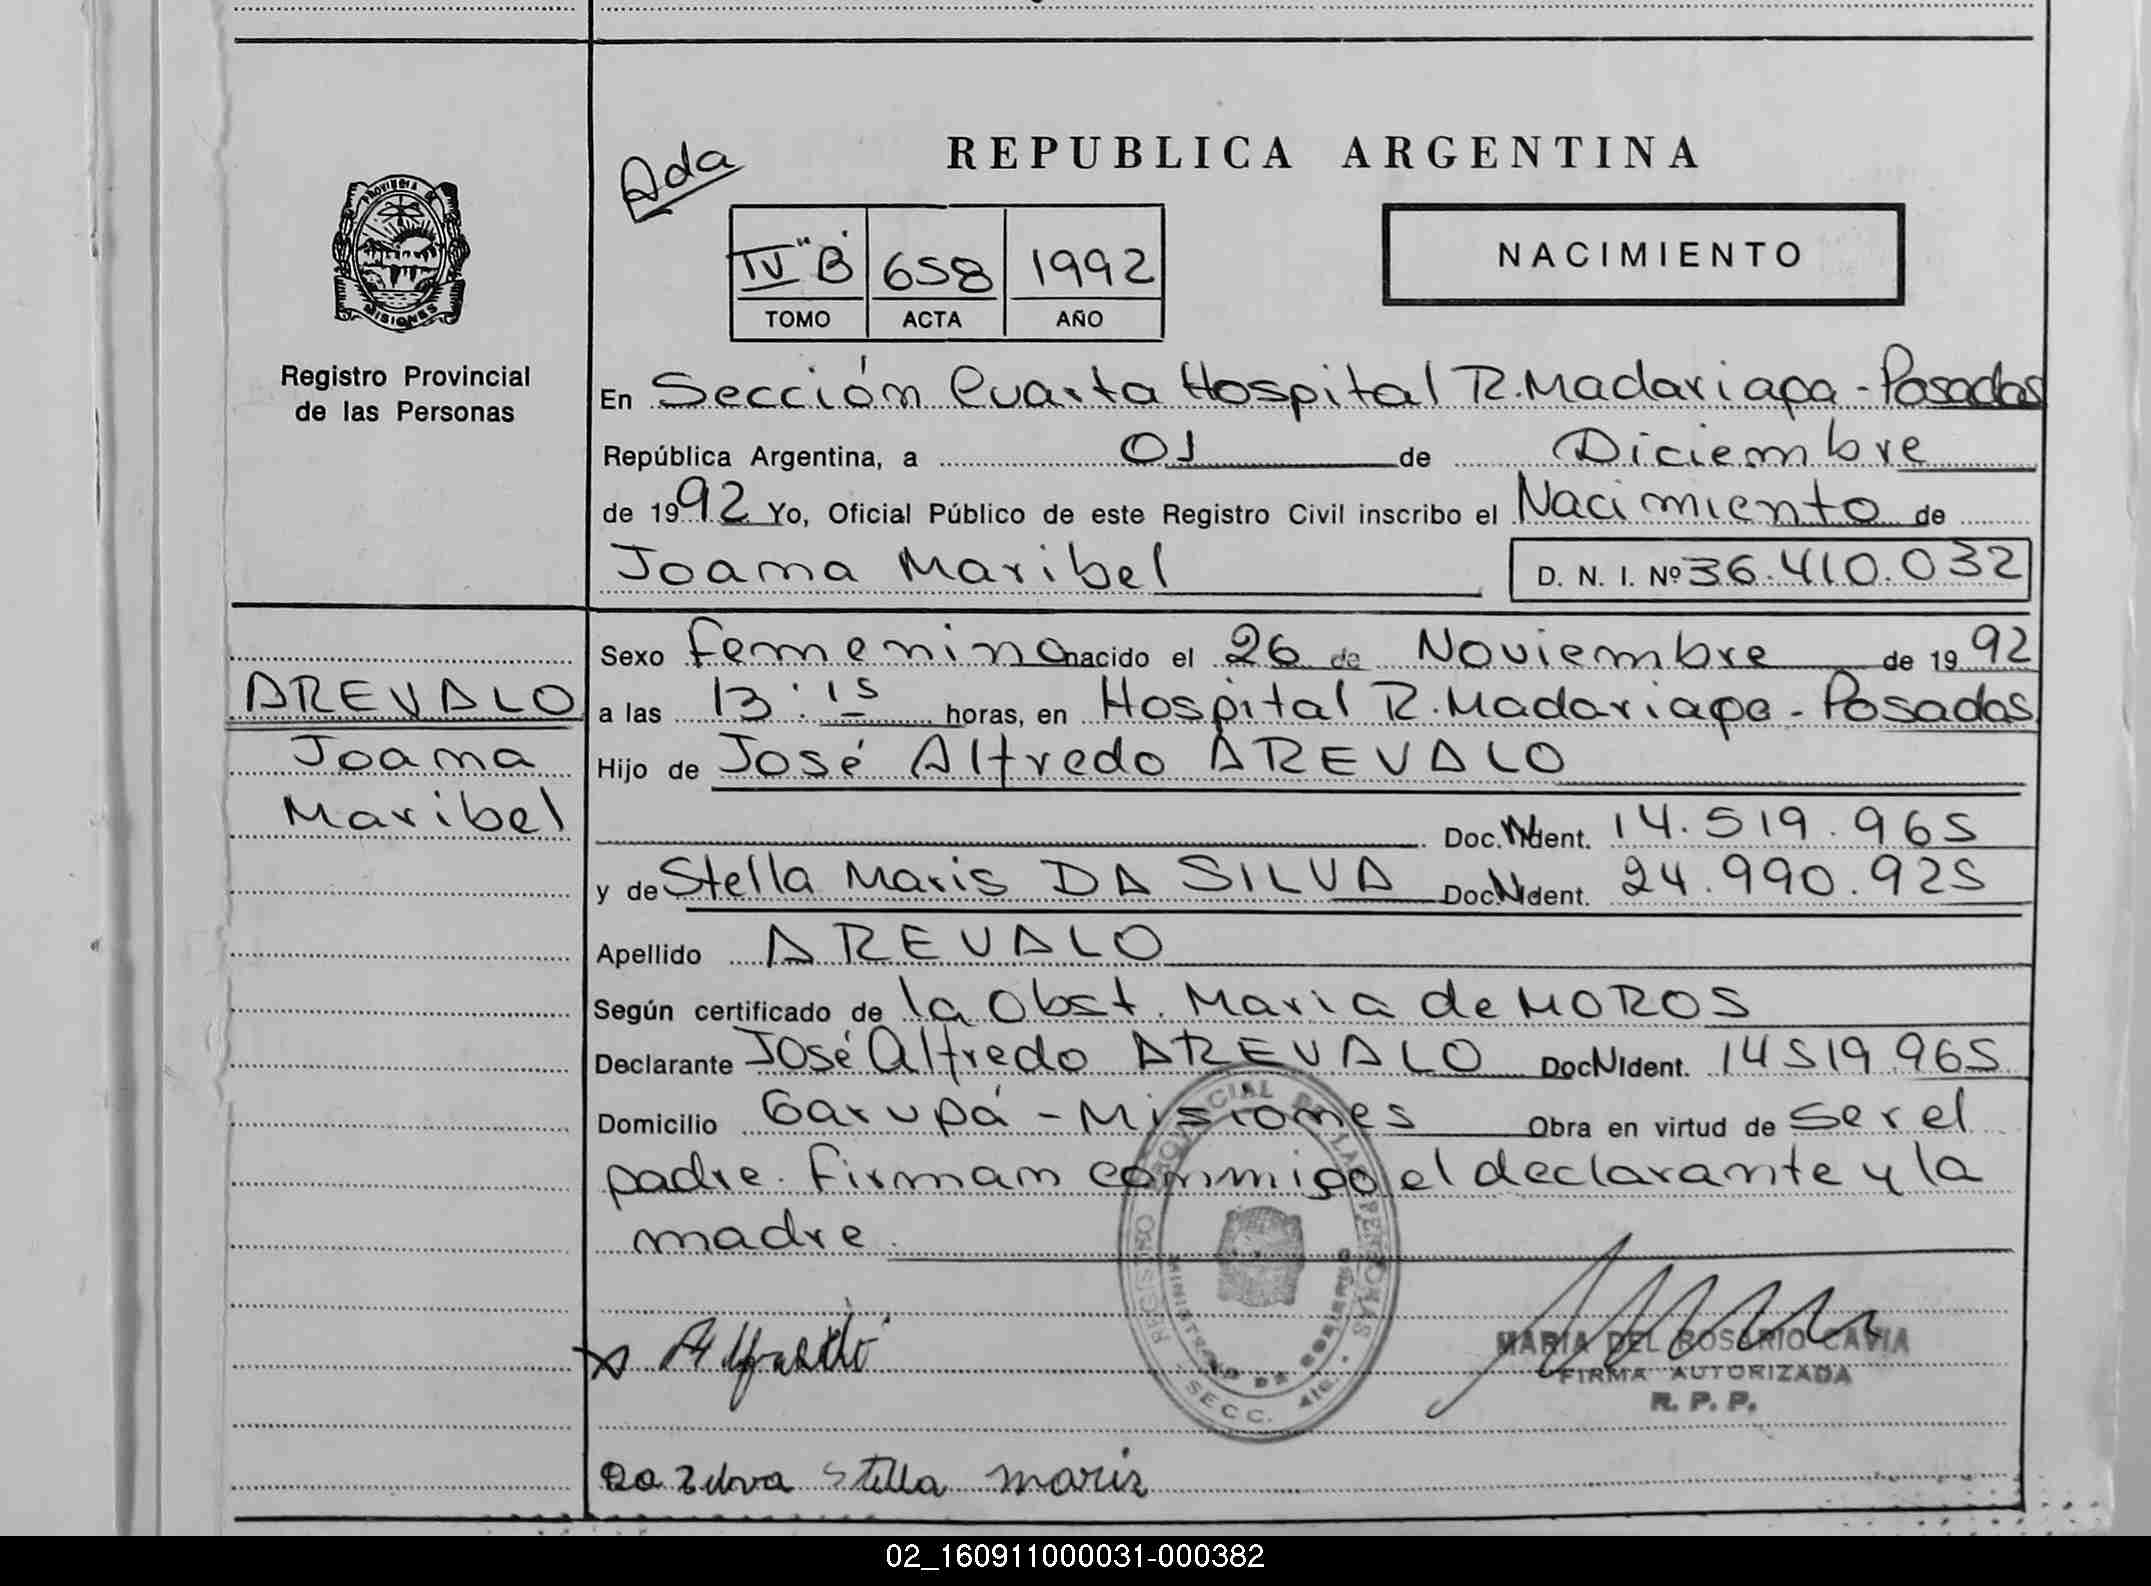 REPUBLICA ARGENTINA
Ada
IV "B" 658 1992
TOMO ACTA AÑO
NACIMIENTO
PROVINCIA DE
MISIONES
Registro Provincial
de las Personas
En Sección Cuarta Hospital R. Madariaga - Posadas
República Argentina, a 01 de Diciembre
de 1992 Yo, Oficial Público de este Registro Civil inscribo el Nacimiento de
Joana Maribel D. N. I. Nº 36.410.032
AREVALO
Joana
Maribel
Sexo femenino nacido el 26 de Noviembre de 1992
a las 13:15 horas, en Hospital R. Madariaga - Posadas
Hijo de José Alfredo AREVALO
Doc. Nident. 14.519.965
y de Stella Maris DA SILVA Doc N ident. 24.990.925
Apellido AREVALO
Según certificado de la Obst. Maria de MOROS
Declarante José Alfredo AREVALO Doc N Ident. 14519965
Domicilio Garupá - Misiones Obra en virtud de ser el
padre. Firman conmigo el declarante y la
madre.
REGISTRO PROVINCIAL DE LAS PERSONAS
MINISTERIO DE GOBIERNO
SECC. 4ta.
Alfredo
MARIA DEL ROSARIO CAVIA
FIRMA AUTORIZADA
R. P. P.
Da Zilva Stella maris
02_160911000031-000382